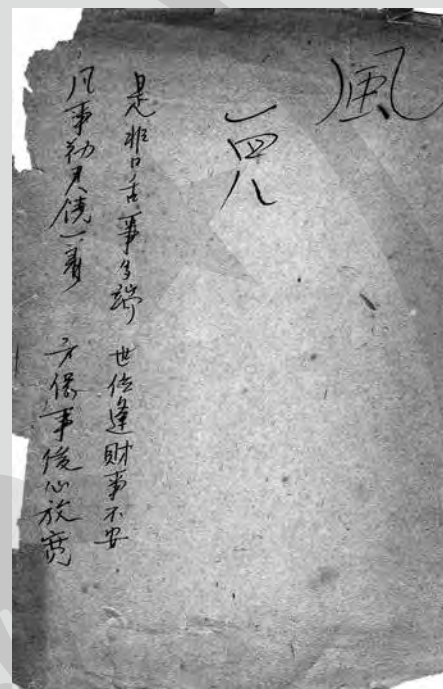 風
一四八
是非口舌事多端 世位逢財事不安
凡事初見饒一着 方保事後心放寬